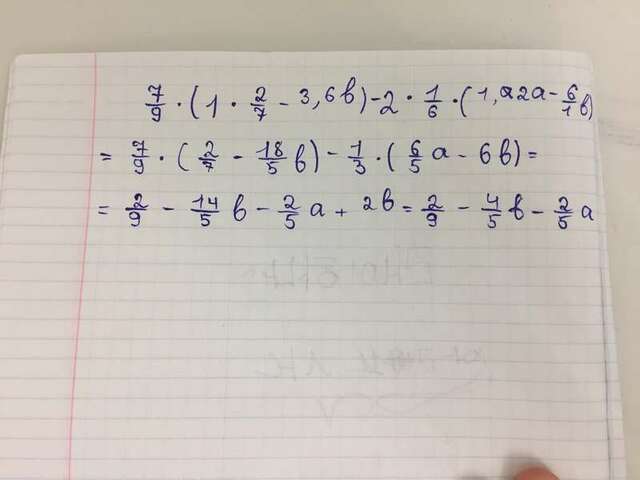 7/9 · (1 · 2/7 - 3,6в) - 2 · 1/6 · (1,2a - 6/1 в)
= 7/9 · (2/7 - 18/5 в) - 1/3 · (6/5 a - 6в) =
= 2/9 - 14/5 в - 2/5 a + 2в = 2/9 - 4/5 в - 2/5 a